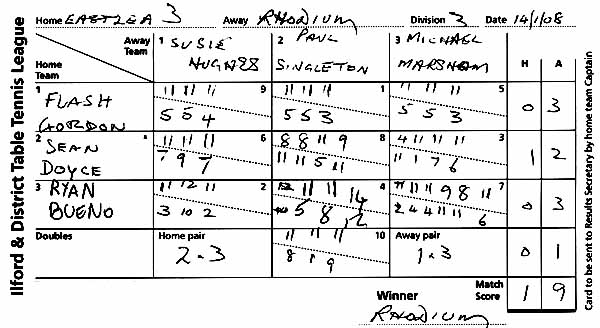 Ilford & District Table Tennis League
Home EASTLEA 3 Away RHODIUM Division 3 Date 14/1/08
Away Team 1 SUSIE HUGHES 2 PAUL SINGLETON 3 MICHAEL MARSHAM H A
Home Team
1 FLASH GORDON 9 1 5 0 3
11 11 11 11 11 11 11 11 11
5 5 4 5 5 3 5 5 3
2 SEAN DOYCE 6 8 3 1 2
11 11 11 8 8 11 9 4 11 11 11
7 9 7 11 11 5 11 11 1 7 6
3 RYAN BUENO 2 4 7 0 3
11 12 11 11 11 14 11 11 9 8 11
3 10 2 5 8 12 2 4 11 11 6
Doubles Home pair 10 Away pair
11 11 11
2-3 8 9 1-3 0 1
Winner Match Score 1 9
RHODIUM
Card to be sent to Results Secretary by home team Captain